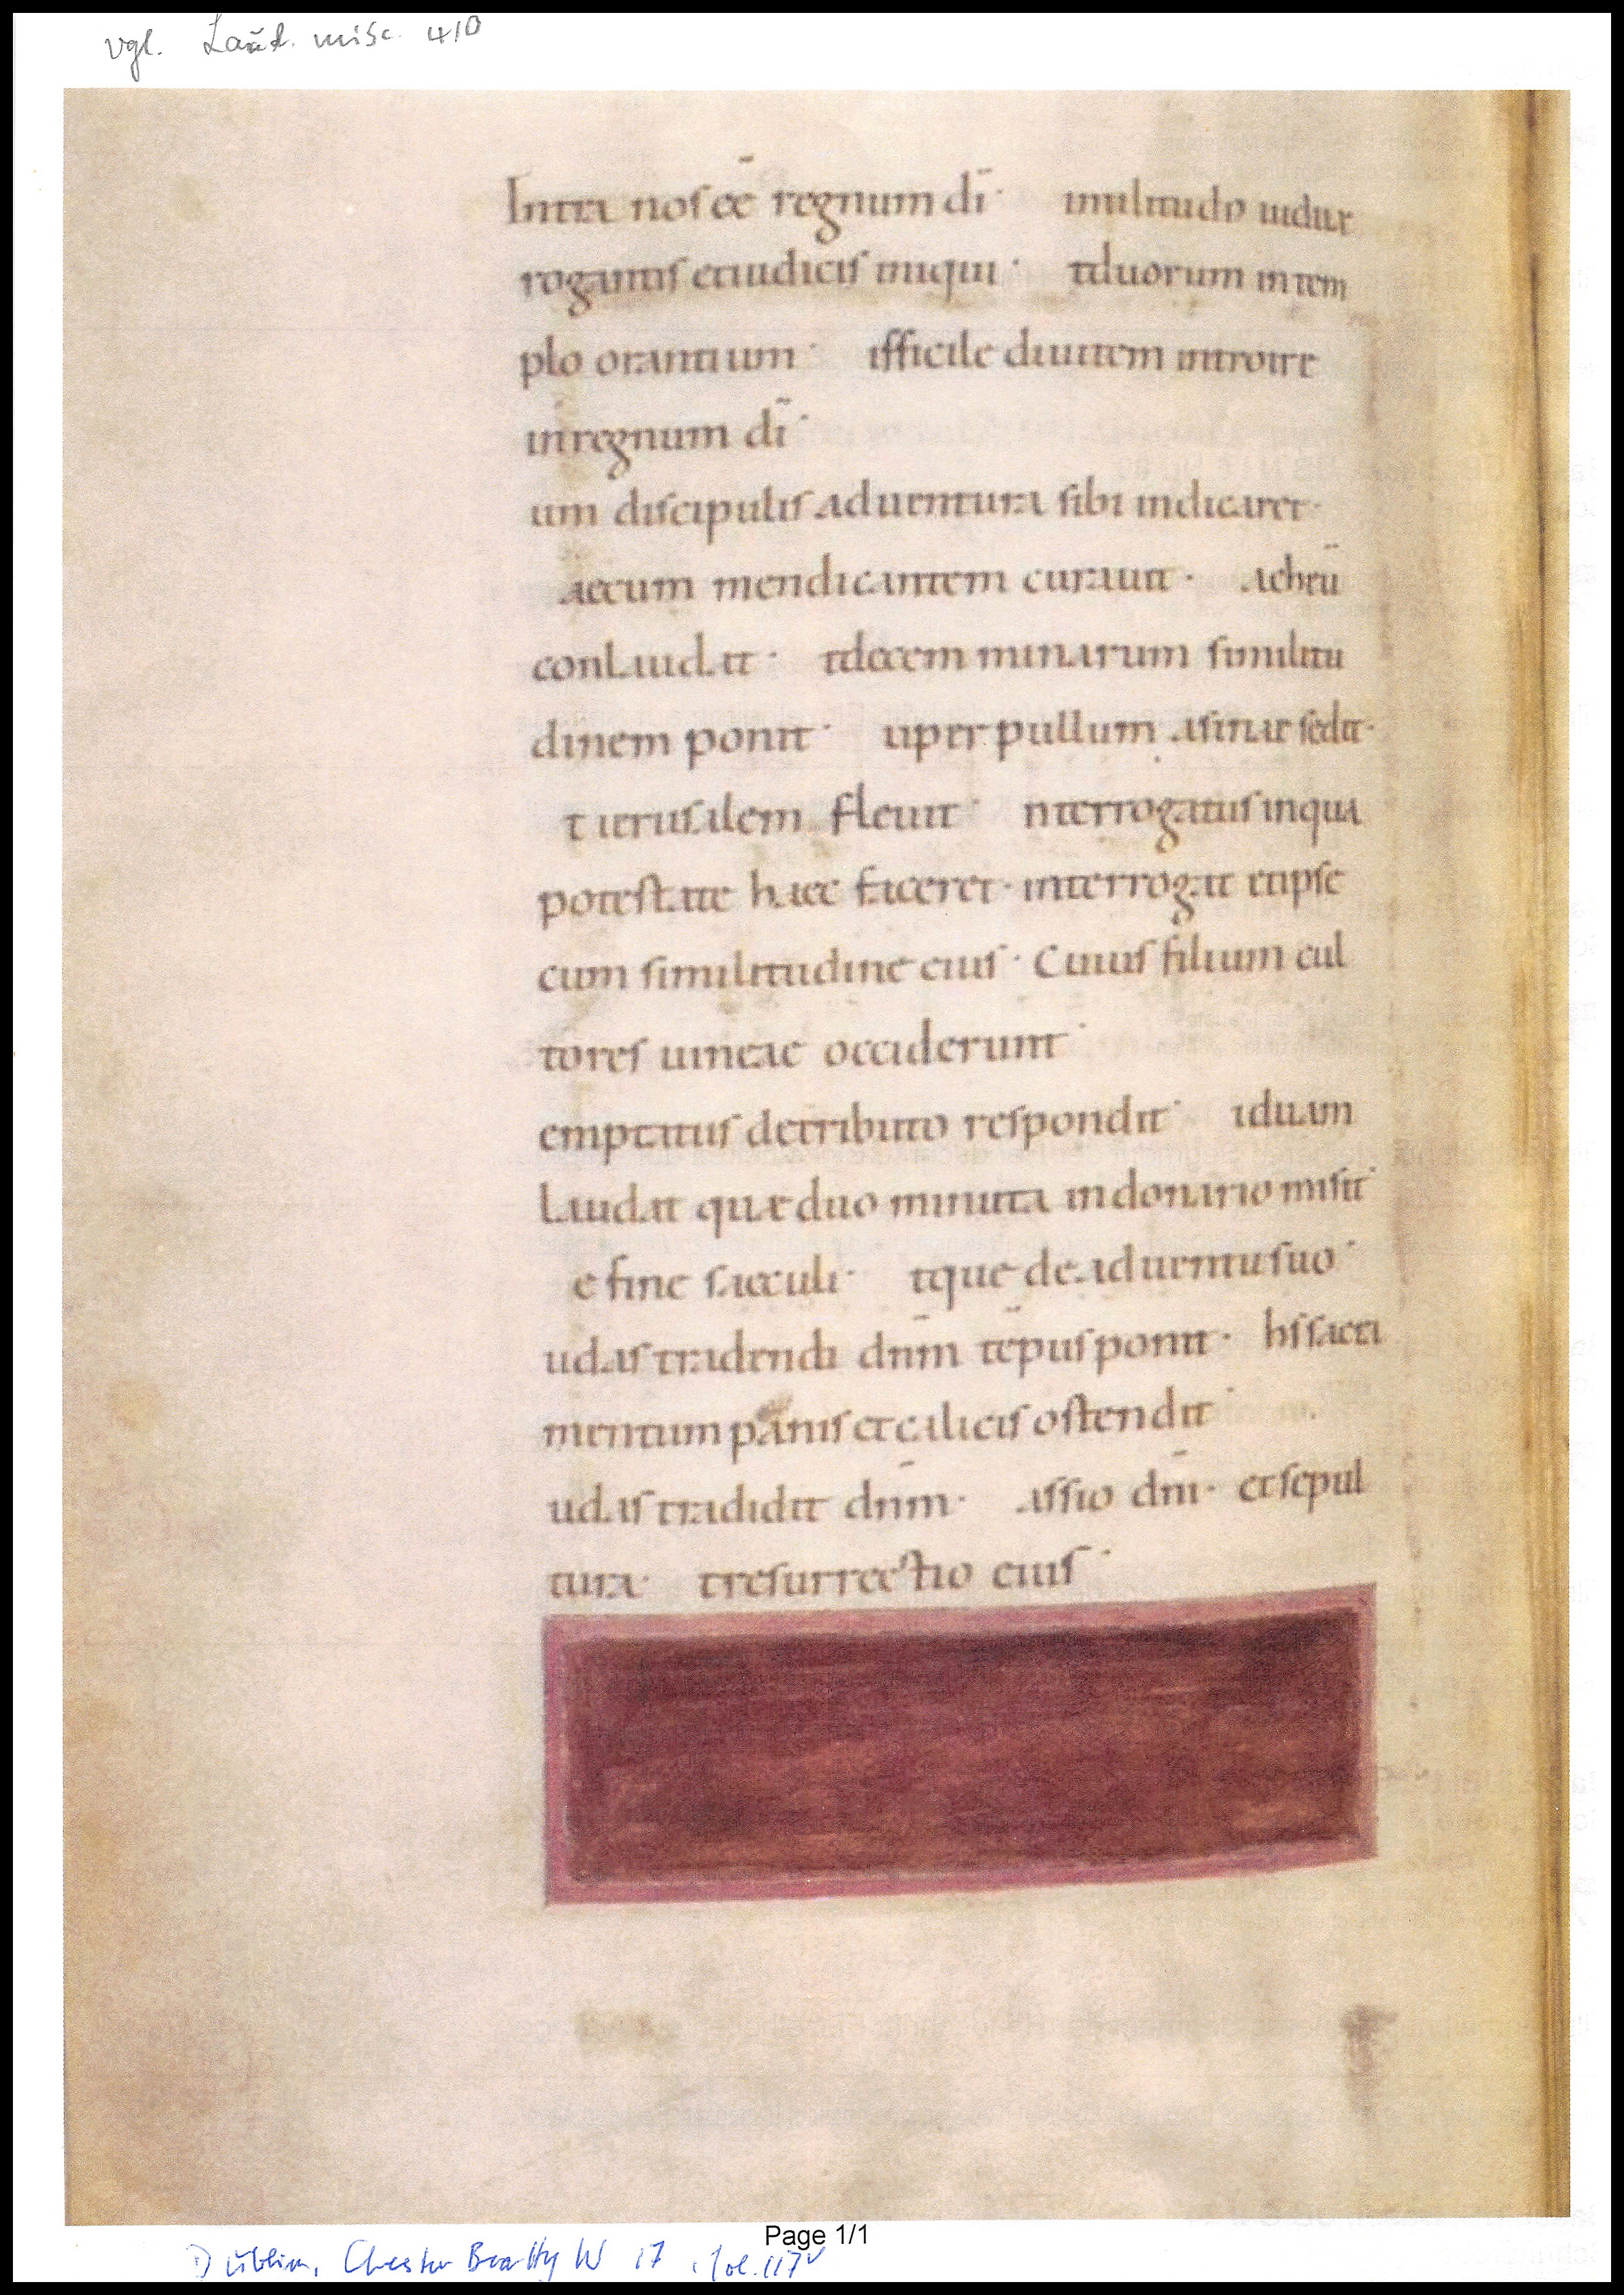 vgl. Laud. misc. 410
Intra nos eē regnum dī· imilitudo uiduae
rogantis et iudicis iniqui· tduorum in tem
plo orantium· ifficile diuitem introire
in regnum dī·
um discipulis ad uentura sibi indicaret·
aecum mendicantem curauit· acheū
conlaudat· tdecem minarum similitu
dinem ponit· uper pullum asinae sedit·
t ierusalem fleuit· nterrogatus in qua
potestate haec faceret· interrogat et ipse
cum similitudine eius· Cuius filium cul
tores uineae occiderunt·
emptatus de tributo respondit· iduam
laudat quae duo minuta in donario misit·
e fine saeculi· tque de aduentu suo·
udas tradendi dnm̄ tēpus ponit· hs sacra
mentum panis et calicis ostendit·
udas tradidit dnm̄· assio dnī· et sepul
tura· t resurrectio eius·
Page 1/1
Dublin, Chester Beatty W 17, fol. 117v